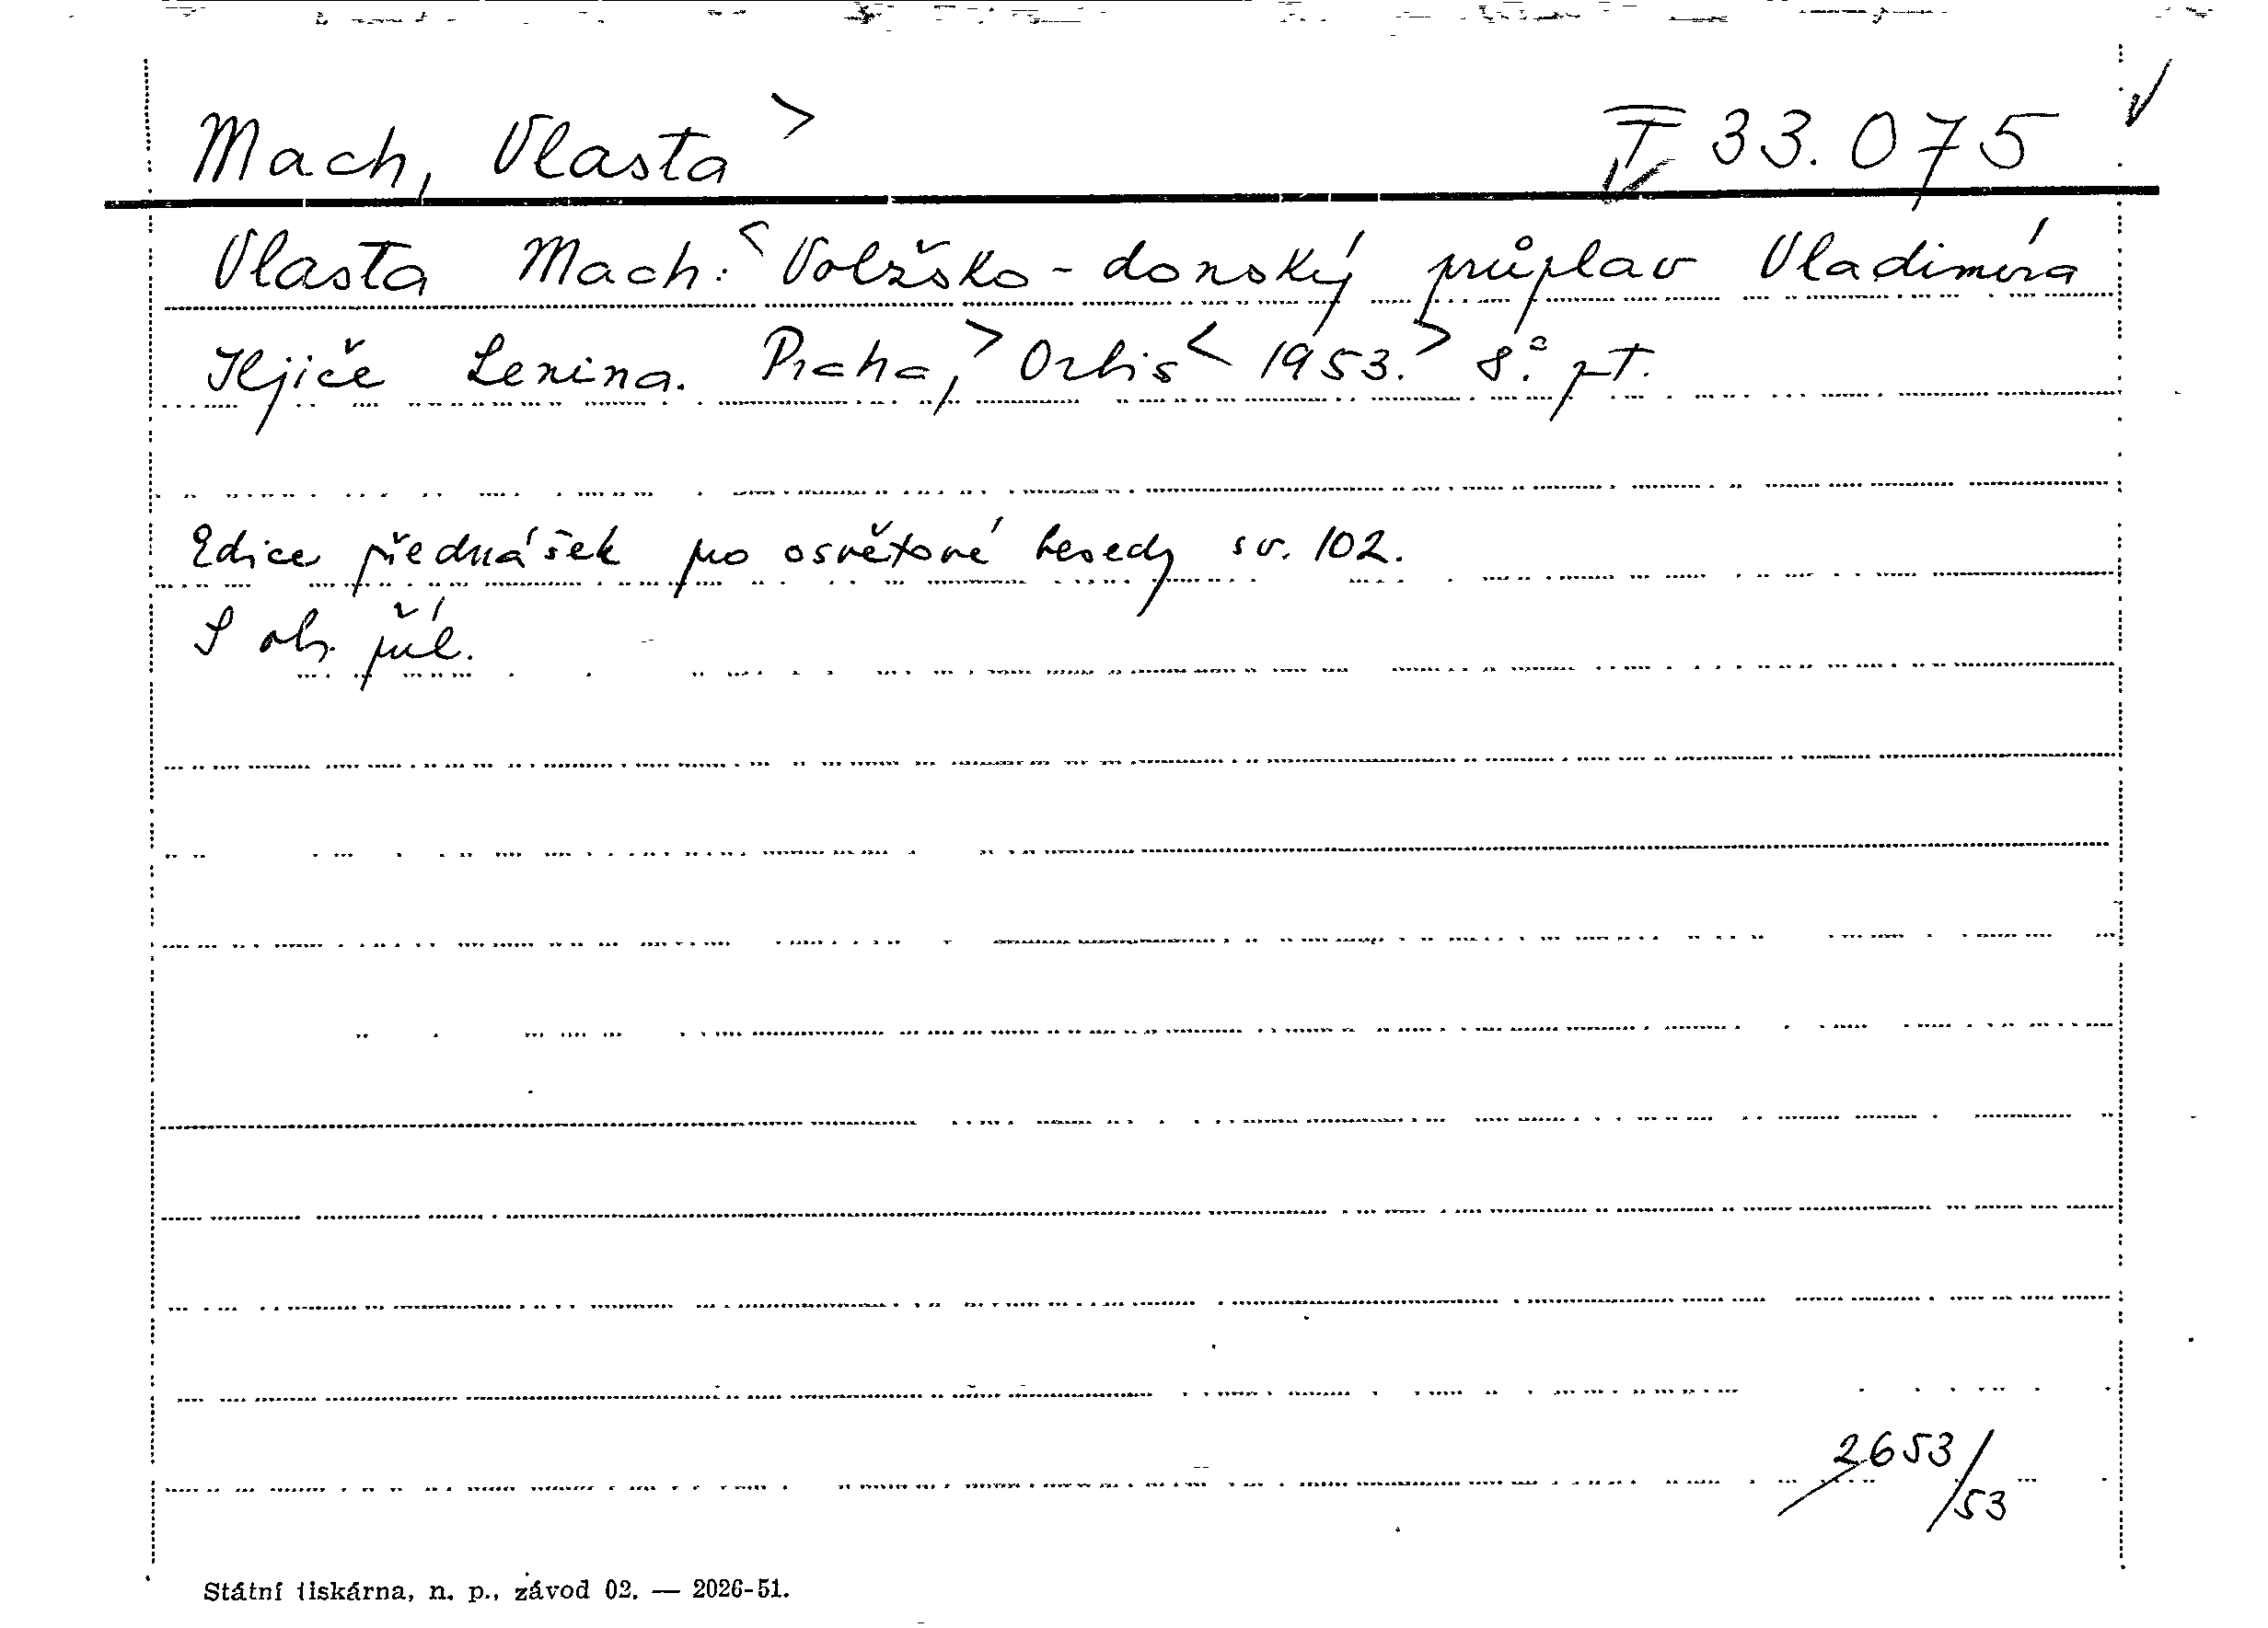 Mach, Vlasta > I 33.075 ✓
Vlasta Mach: < Volžsko-donský průplav Vladimíra
Iljiče Lenina. Praha, > Orbis < 1953. > 8°. pt.
Edice přednášek pro osvětové besedy sv. 102.
S ob. příl.
2653/53
Státní tiskárna, n. p., závod 02. — 2026-51.